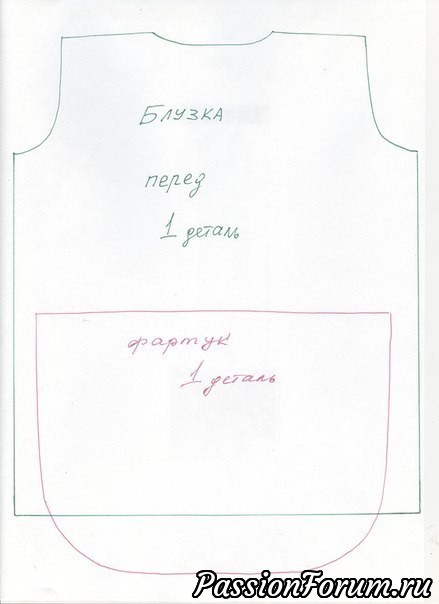 Блузка
перед
1 деталь
фартук
1 деталь
PassionForum.ru